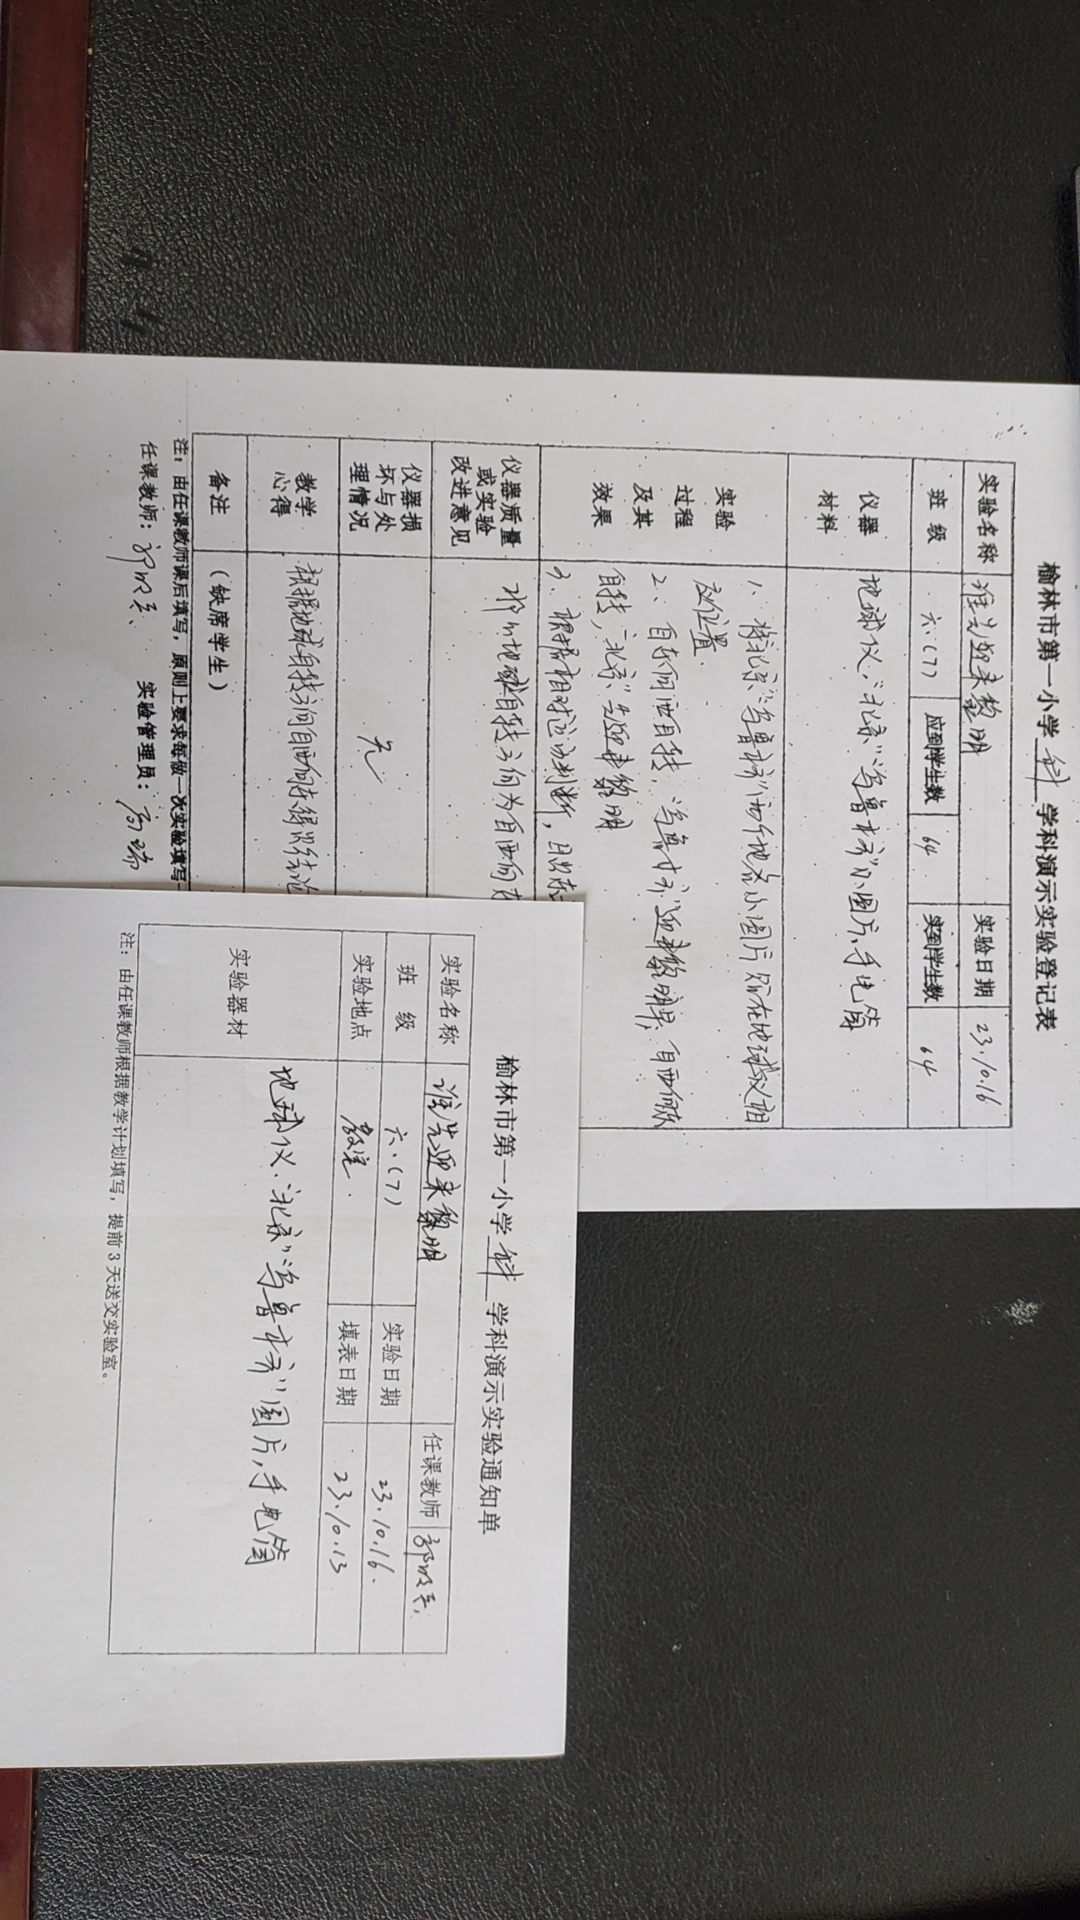 榆林市第一小学 科 学科演示实验登记表
实验名称 谁先迎来黎明 实验日期 23.10.16
班 级 六.(7) 应到学生数 64 实到学生数 64
仪器
材料
地球仪、"北京""乌鲁木齐"小图片,手电筒
实验
过程
及其
效果
1、将"北京""乌鲁木齐"两个地名小图片贴在地球仪相
应位置.
2、自东向西自转,"乌鲁木齐"迎来黎明早,自西向东
自转,"北京"先迎来黎明
3、根据相对运动判断,日出东
仪器质量
或实验
改进意见
地球自转方向为自西向东
仪器损
坏与处
理情况
无
教学
心得
根据地球自转方向自西向东得出结论
备注 (缺席学生)
注:由任课教师课后填写,原则上要求每做一次实验填写一
任课教师: 实验管理员:高瑞
榆林市第一小学 科 学科演示实验通知单
实验名称 谁先迎来黎明 任课教师
班 级 六.(7) 实验日期 23.10.16.
实验地点 教室. 填表日期 23.10.13
实验器材 地球仪、"北京""乌鲁木齐"图片,手电筒
注:由任课教师根据教学计划填写,提前3天送交实验室。